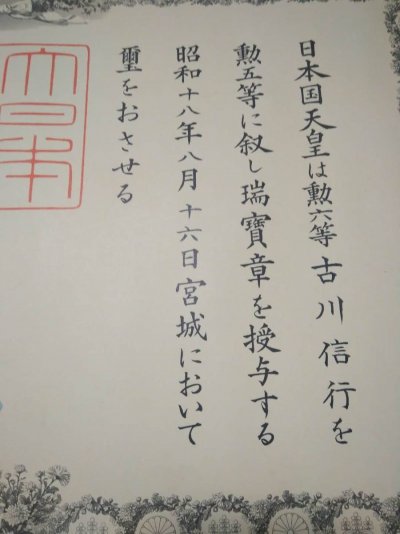 日本国天皇は勲六等古川信行を
勲五等に叙し瑞寶章を授与する
昭和十八年八月十六日宮城において
璽をおさせる
大日本